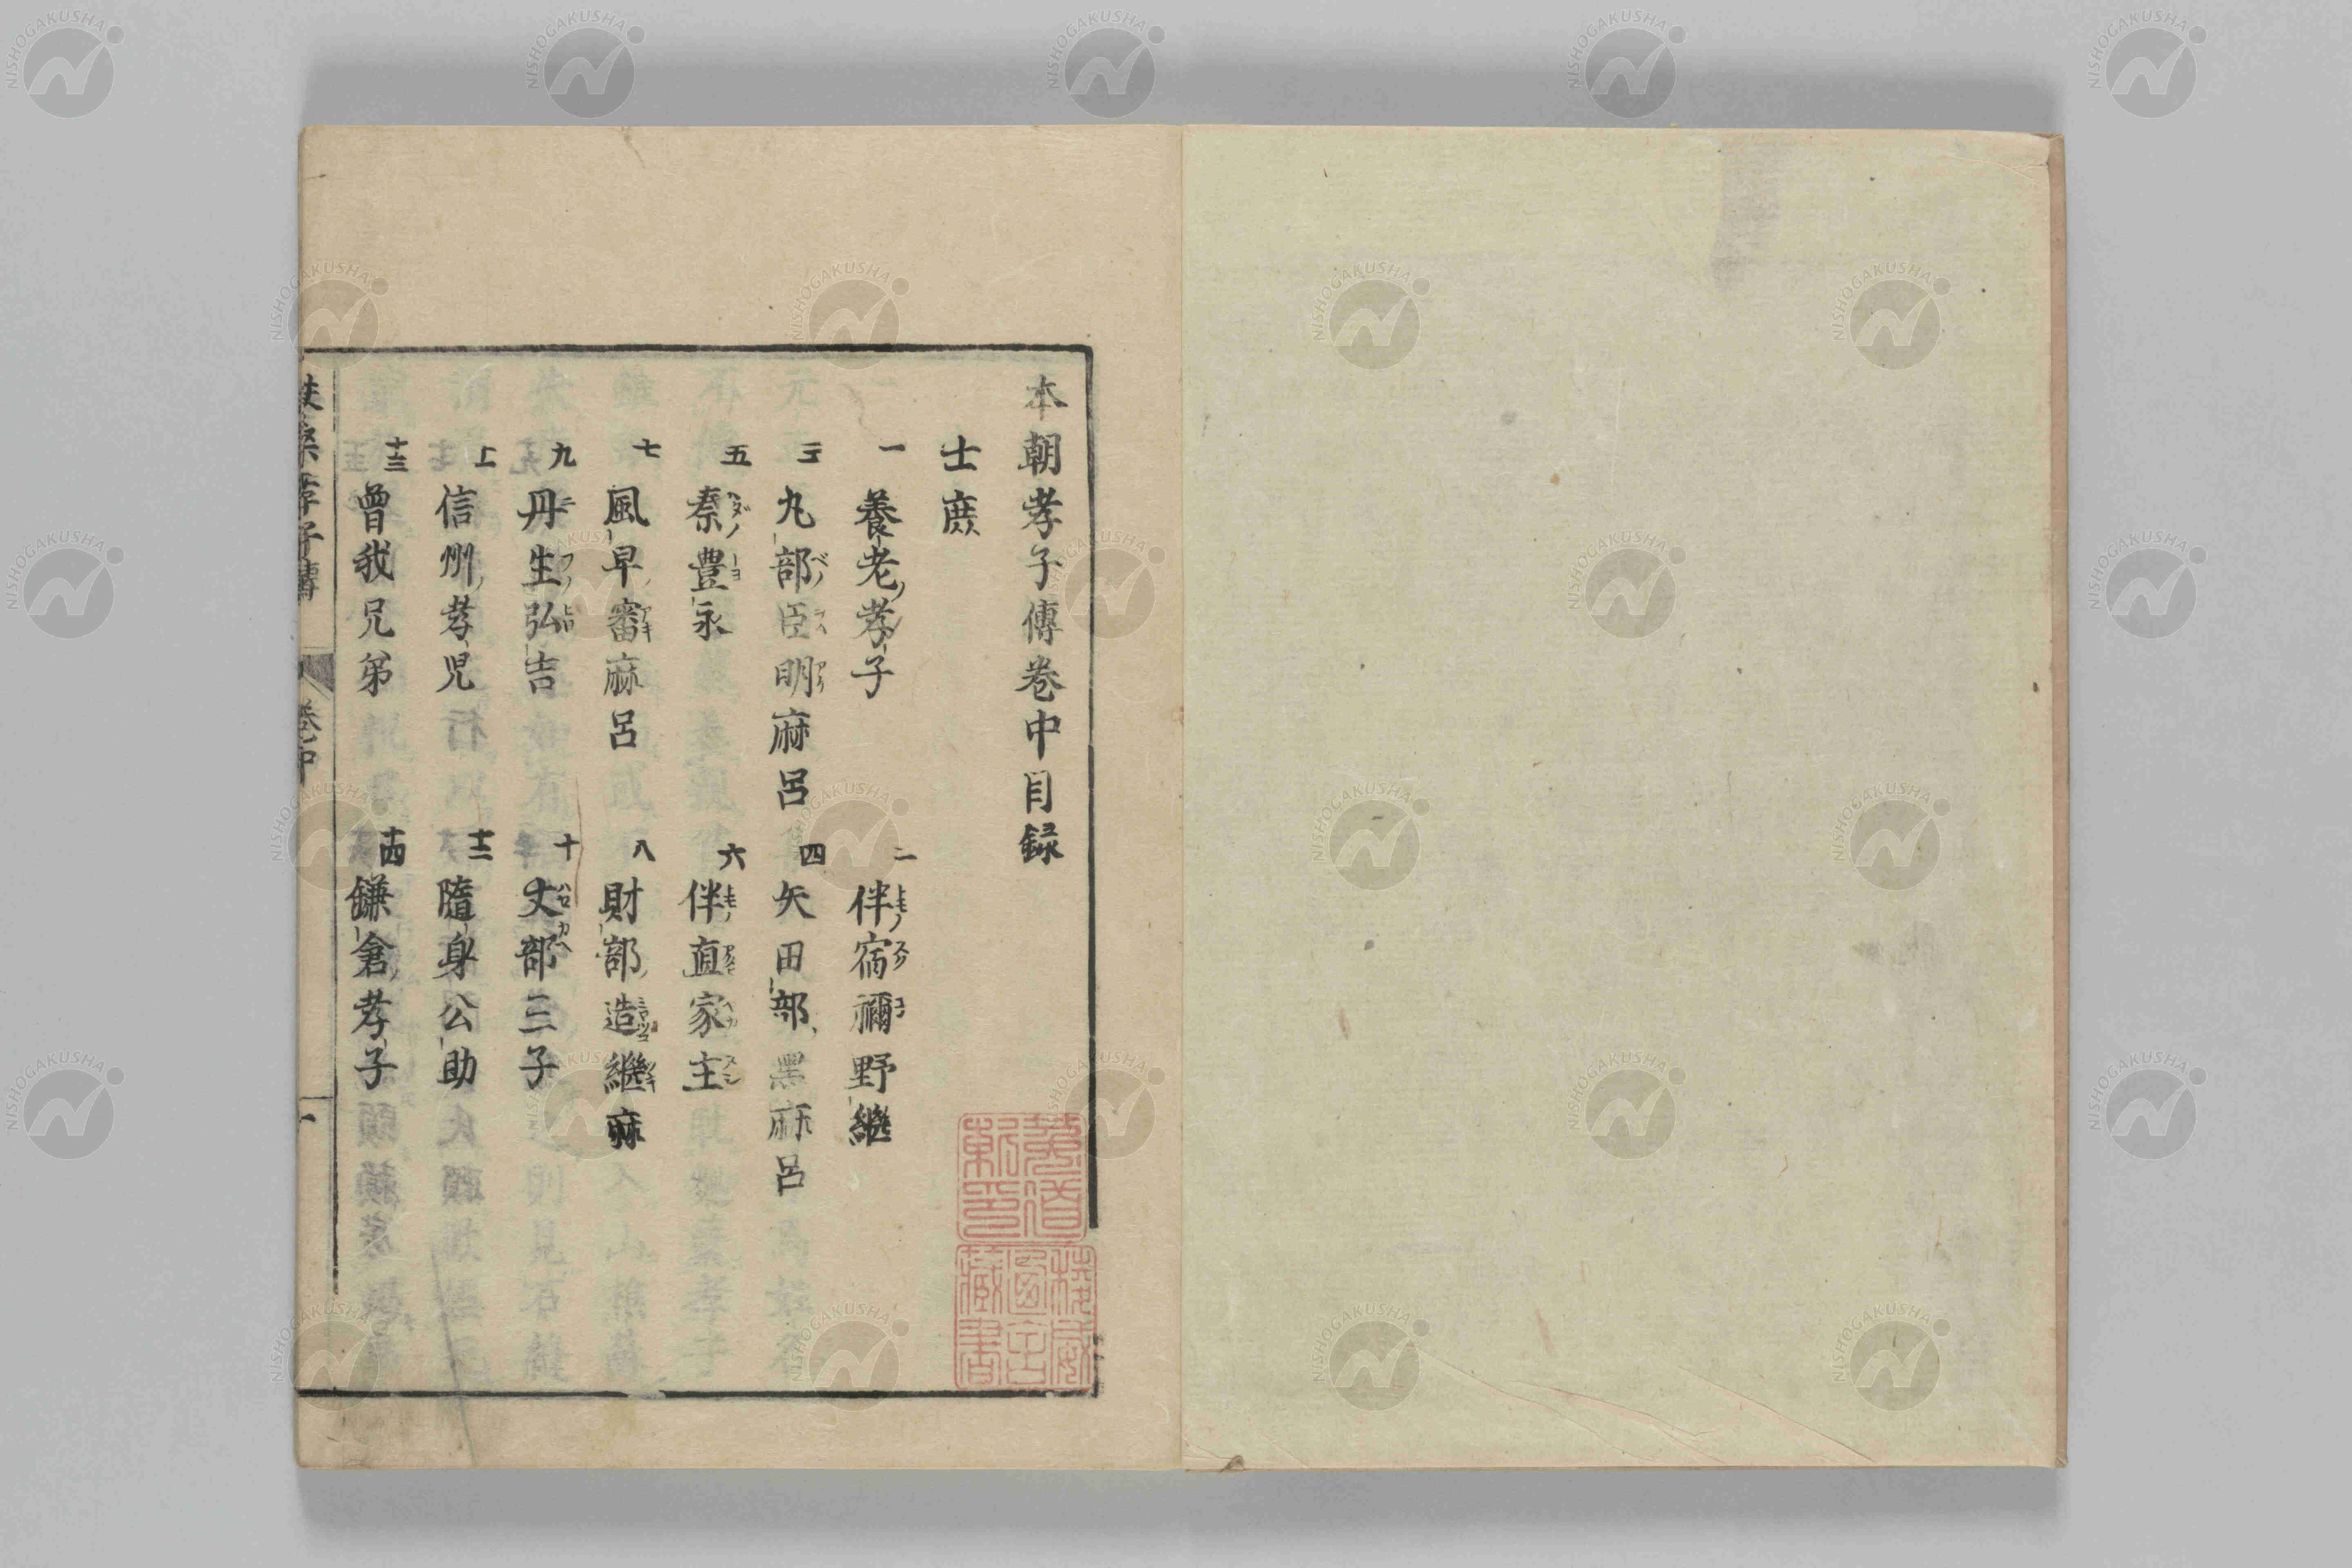 本朝孝子傳卷中目録
士庶
一 養老孝子
二 伴宿禰野繼
三 丸部臣明麻呂
四 矢田部黑麻呂
五 秦豊永
六 伴直家主
七 風早審麻呂
八 財部造繼麻
九 丹生弘吉
十 丈部三子
十一 信州孝児
十二 隨身公助
十三 曾我兄弟
十四 鎌倉孝子
孝子傳
卷中
NISHOGAKUSHA